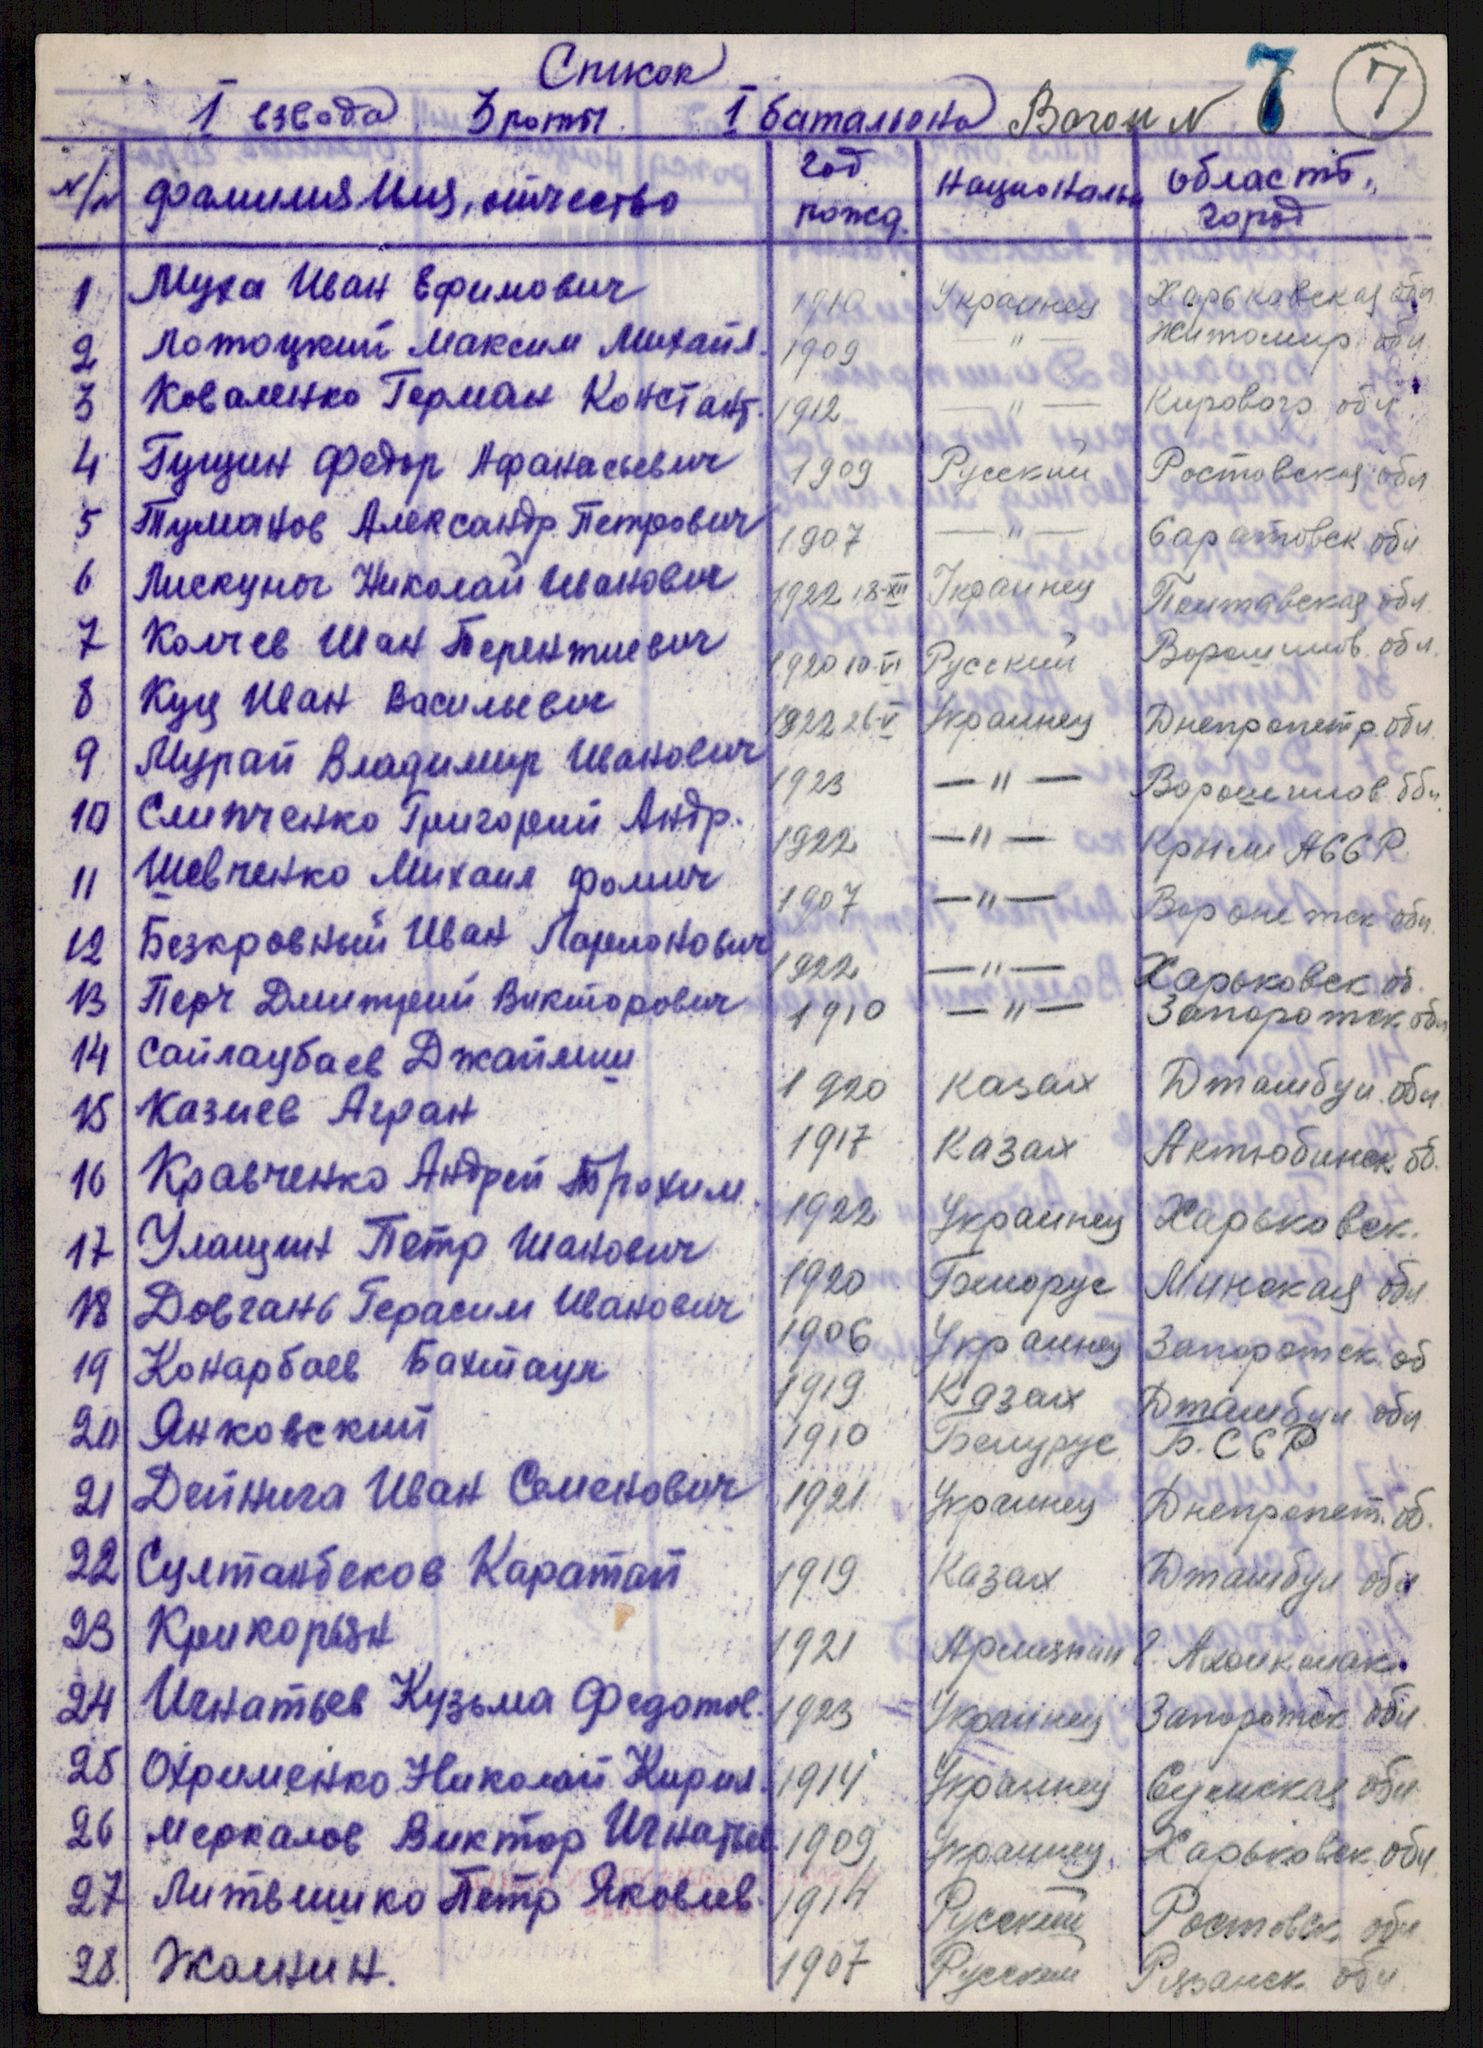 Список
I взвода 3 роты. I баталиона Вагон N 7 7
N/N фамилия Имя, отчество год рожд. национальн область, город
1 Муха Иван Ефимович 1910 Украинец Харьковская обл
2 Потоцкий Максим Михайл. 1909 —"— Житомир. обл
3 Коваленко Герман Констант. 1912 —"— Кировогр обл
4 Гущин Федор Афанасьевич 1909 Русский Ростовская обл
5 Туманов Александр Петрович 1907 —"— Саратовск обл
6 Пискуног Николай Иванович 1922 18-XII Украинец Полтавская обл.
7 Колчев Иван Терентиевич 1920 10-VI Русский Ворошилов. обл.
8 Куц Иван Васильевич 1922 26-V Украинец Днепропетр. обл.
9 Мурай Владимир Иванович 1923 —"— Ворошилов обл.
10 Слипченко Григорий Андр. 1922 —"— Крым АССР
11 Шевченко Михаил Фомич 1907 —"— Воронежск обл.
12 Безкровный Иван Ларионович 1922 —"— Харьковск об.
13 Перч Дмитрий Викторович 1910 —"— Запорожск обл
14 Сайлаубаев Джайлиш 1920 Казах Джамбул. обл
15 Казиев Агран 1917 Казах Актюбинск об.
16 Кравченко Андрей Трохим. 1922 Украинец Харьковск.
17 Улащин Петр Иванович 1920 Белорус Минская обл
18 Довгань Герасим Иванович 1906 Украинец Запорожск. об
19 Конарбаев Бахтаул 1919 Казах Джамбул обл
20 Янковский 1910 Белурус Б.ССР
21 Дейнига Иван Семенович 1921 Украинец Днепропет. об.
22 Султанбеков Каратай 1919 Казах Джамбул обл
23 Крикорьян 1921 Армянин г.
24 Игнатьев Кузьма Федотов. 1923 Украинец Запорожск обл.
25 Охрименко Николай Кирил. 1914 Украинец Сумская обл
26 Меркалов Виктор Игнатьев 1909 Украинец Харьковск. обл
27 Литвишко Петр Яковлев. 1914 Русский Ростовск обл.
28. Жолнин. 1907 Русский Рязанск обл.